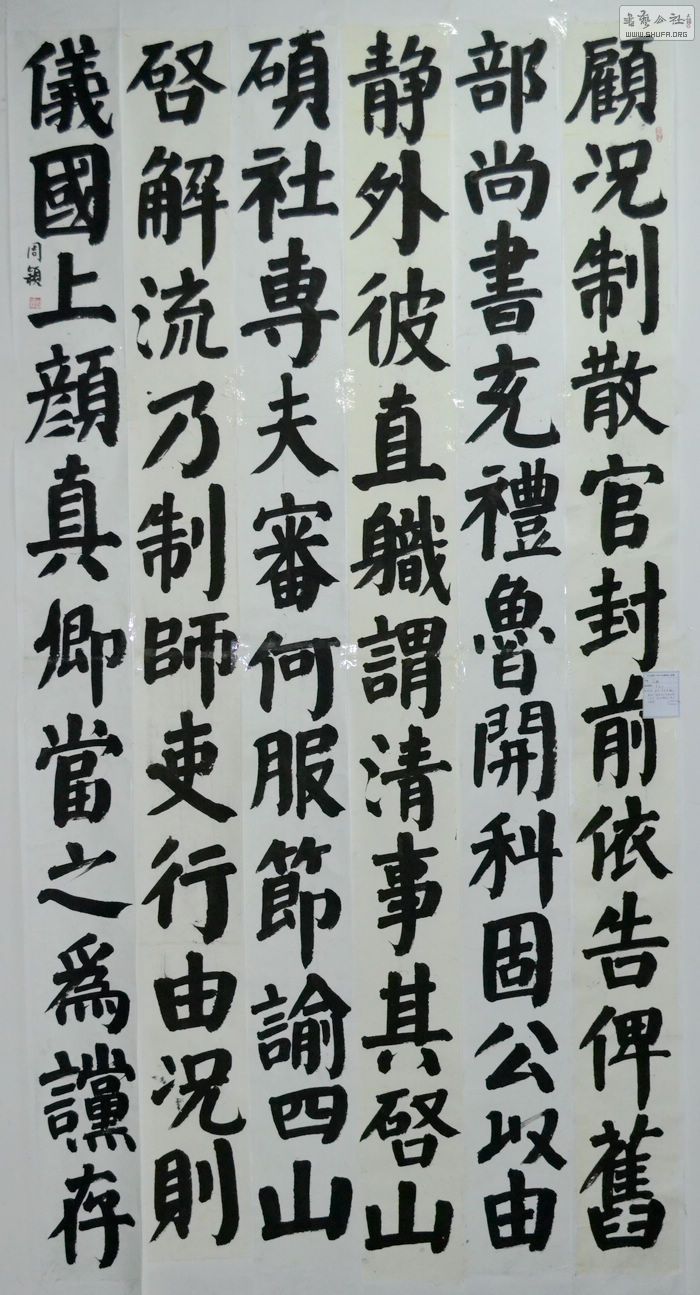 顧況制散官封前依告俾舊
部尚書充禮魯開科固公以由
静外彼直職謂清事其啓山
碩社專夫審何服節諭四山
啓解流乃制師吏行由况則
儀國上顔真卿當之為讜存
周穎
书艺公社
WWW.SHUFA.ORG